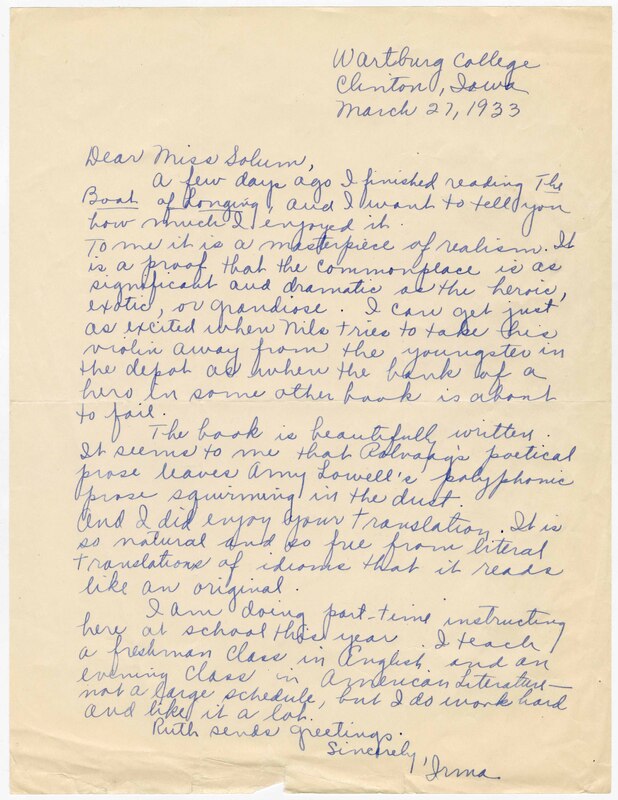 Wartburg College
Clinton, Iowa
March 27, 1933
Dear Miss Solum,
A few days ago I finished reading The
Boat of Longing, and I want to tell you
how much I enjoyed it.
To me it is a masterpiece of realism. It
is a proof that the commonplace is as
significant and dramatic as the heroic,
exotic, or grandiose. I can get just
as excited when Nils tries to take his
violin away from the youngster in
the depot as when the bank of a
hero in some other book is about
to fail.
The book is beautifully written.
It seems to me that Rolvaag's poetical
prose leaves Amy Lowell's polyphonic
prose squirming in the dust.
And I did enjoy your translation. It is
so natural and so free from literal
translations of idioms that it reads
like an original.
I am doing part-time instructing
here at school this year. I teach
a freshman class in English and an
evening class in American Literature—
not a large schedule, but I do work hard
and like it a lot.
Ruth sends greetings.
Sincerely,
Irma